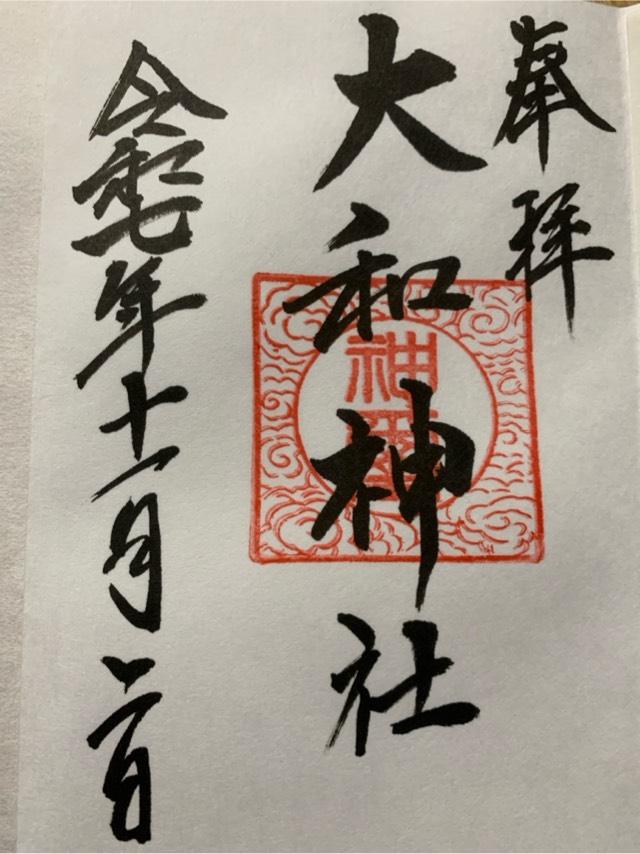 奉拝
大和神社
神
令和七年十一月二日